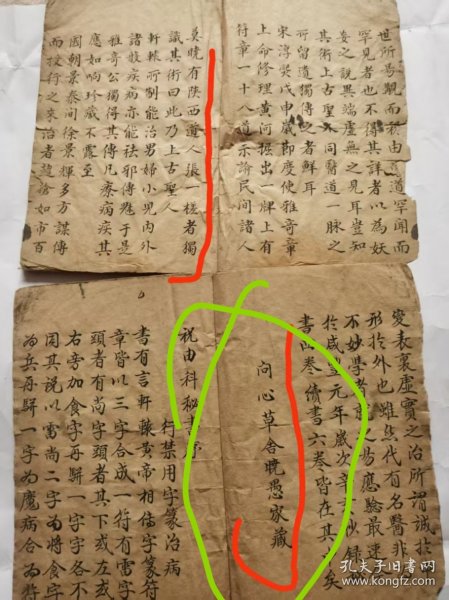 世所易覩而祝由是道罕聞而
罕見者也不得其詳者以為妖
妄之說異端虛無之見耳豈知
其術上古聖不同醫道一脉之
所留道獨傳之者鮮耳
宋淳熙戊申歲即度使雅奇章
上命修理黃河掘出一牌上有
符章一十八道示諭民間諸人
莫曉有陝西道人張一槎者獨
識其術曰此乃上古聖人
軒轅所制能治男婦小兒內外
諸般疾病亦能祛邪傳魁于是
雅奇公獨得其傳凡療病疾其
應如响珍藏不露至
國朝景泰間徐景輝多方謀傳
而授行之來治者趋論如市百
變表裏虛實之治所謂誠於
形於外也雖然代有名醫非
不妙學者之易應驗最速
於咸豐元年歲次辛抄錄
書四卷續書六卷皆在其中矣
問心草舍曉愚家藏
祝由科秘書序
符禁用字篆治病
書有言軒轅黃帝相儒字篆符
章皆以三字合成一符有雷字
頭者有尚字頭者其下或左或
右旁加食字再駢一字字各不
同其說以雷尚二字為將食字
為兵再駢一字為魔病合為符
孔夫子旧书网
book.kongfz.com